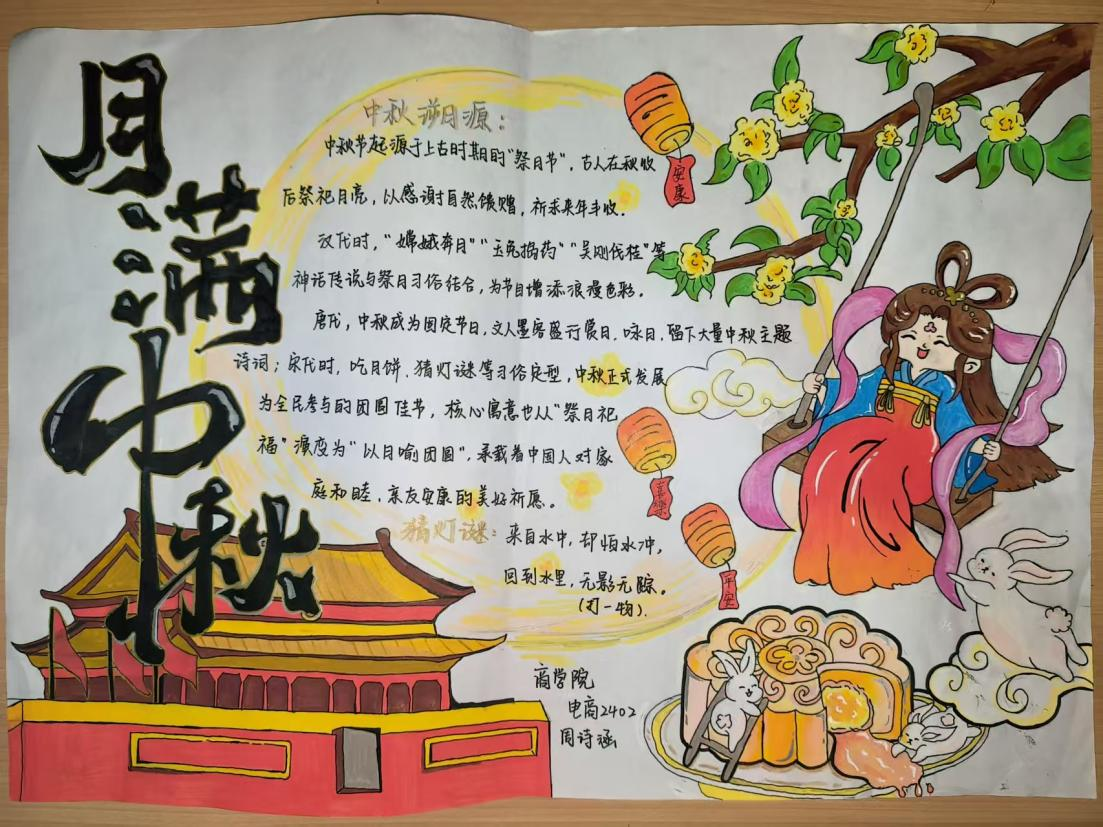 月满中秋
中秋溯月源：
中秋节起源于上古时期的“祭月节”，古人在秋收
后祭祀月亮，以感谢对自然馈赠，祈求来年丰收.
汉代时，“嫦娥奔月”“玉兔捣药”“吴刚伐桂”等
神话传说与祭月习俗结合，为节日增添浪漫色彩.
唐代，中秋成为固定节日，文人墨客盛行赏月、咏月，留下大量中秋主题
诗词；宋代时，吃月饼、猜灯谜等习俗定型，中秋正式发展
为全民参与的团圆佳节，核心寓意也从“祭月祀
福”演变为“以月喻团圆”，承载着中国人对家
庭和睦，亲友安康的美好祈愿。
猜灯谜：来自水中，却怕水冲，
回到水里，无影无踪。
（打一物）.
安康
喜乐
平安
商学院
电商2402
周诗涵